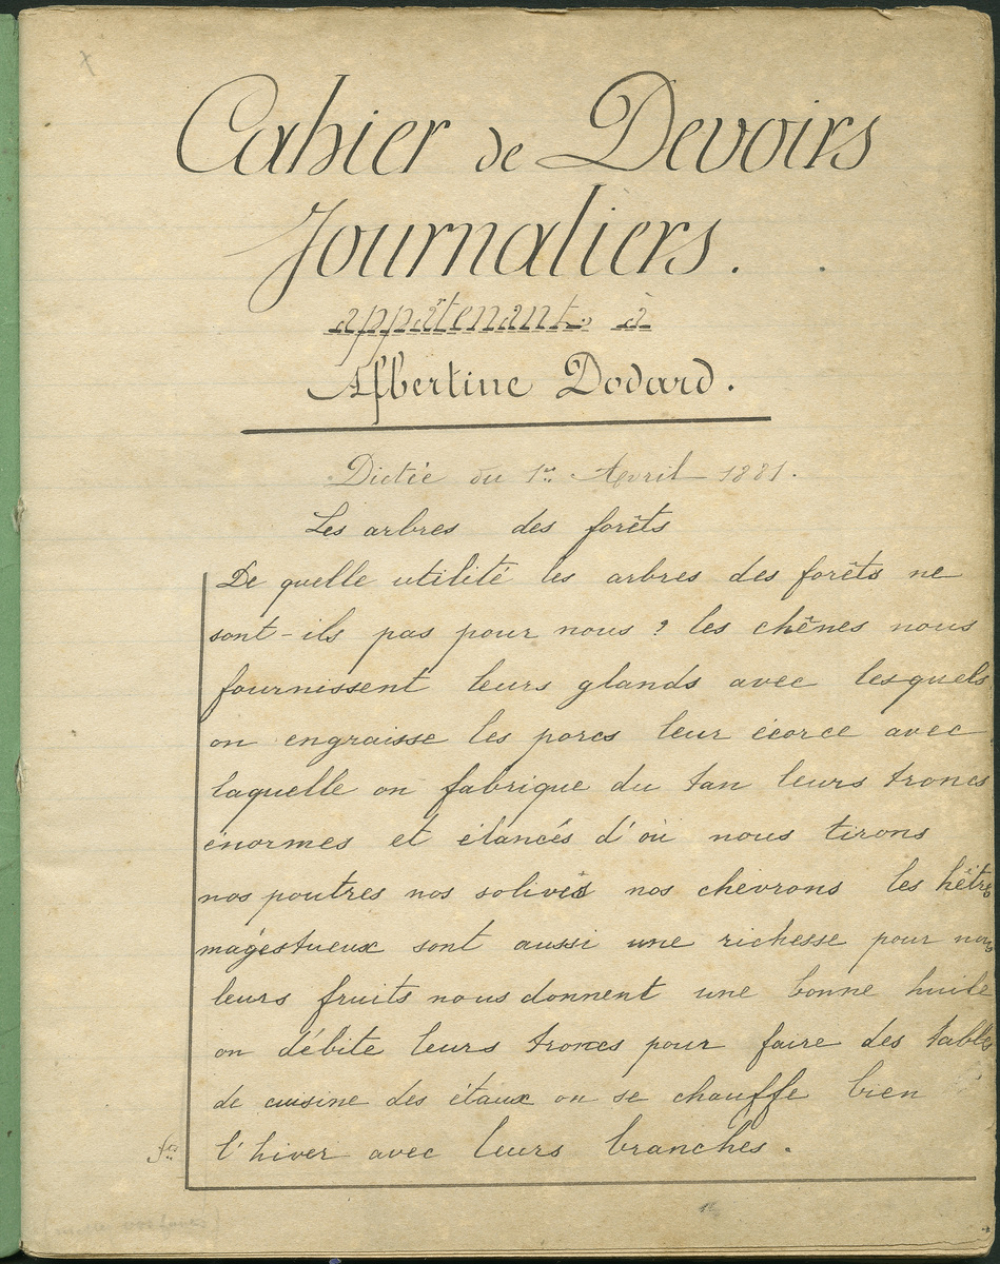 Cahier de Devoirs
Journaliers.
appartenant à
Albertine Dodard.
Dictée du 1er Avril 1881.
Les arbres des forêts
De quelle utilité les arbres des forêts ne
sont-ils pas pour nous ? les chênes nous
fournissent leurs glands avec lesquels
on engraisse les porcs leur écorce avec
laquelle on fabrique du tan leurs troncs
énormes et élancés d'où nous tirons
nos poutres nos solives nos chevrons les hêtres
magestueux sont aussi une richesse pour nous
leurs fruits nous donnent une bonne huile
on débite leurs troncs pour faire des tables
de cuisine des étaux on se chauffe bien
l'hiver avec leurs branches.